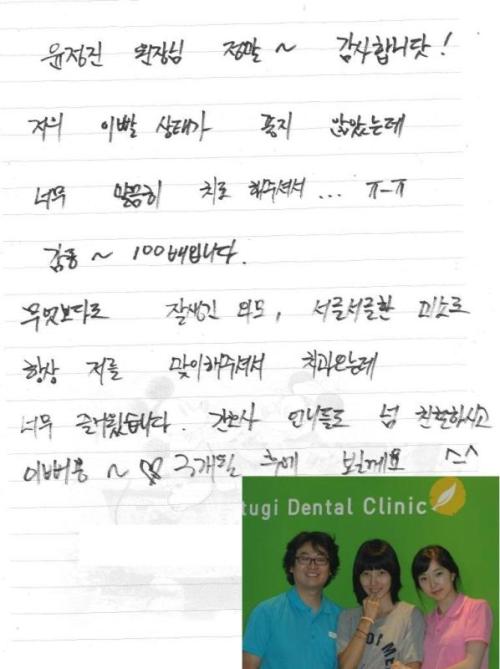 윤정진 원장님 정말 ~ 감사합니닷!
저의 이빨 상태가 좋지 않았는데
너무 말끔히 치료 해주셔서... ㅠ-ㅠ
감동 ~ 100배입니다.
무엇보다도 잘생긴 외모, 서글서글한 미소로
항상 저를 맞이해주셔서 치과오는데
너무 즐거웠습니다. 간호사 언니들도 넘 친절하시고
이뻐용 ~ ♡ 3개월 후에 뵐께요 ^-^
tugi Dental Clinic
DI ME